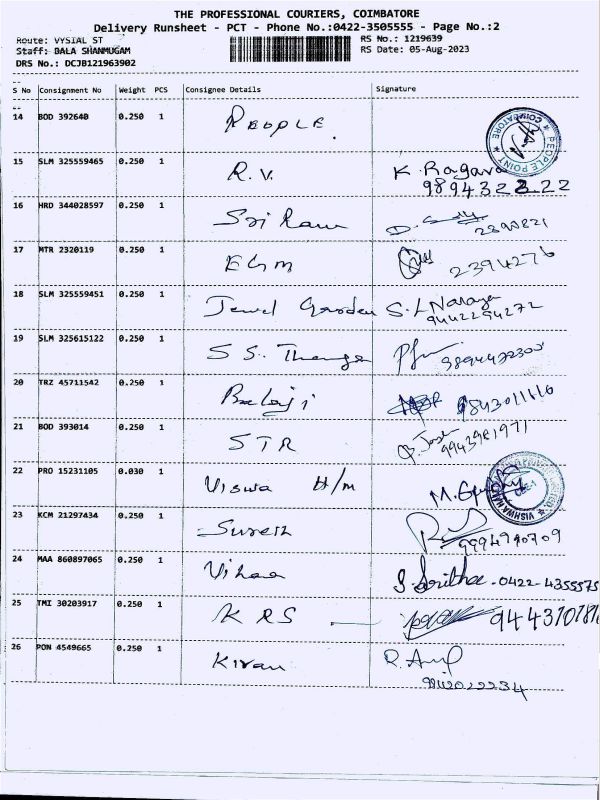 THE PROFESSIONAL COURIERS, COIMBATORE
Delivery Runsheet - PCT - Phone No.:0422-3505555 - Page No.:2
Route: VYSIAL ST
RS No.: 1219639
Staff: BALA SHANMUGAM
RS Date: 05-Aug-2023
DRS No.: DCJB121963902
S No Consignment No Weight PCS Consignee Details Signature
14 BOD 392640 0.250 1 PEOPLE
PEOPLE POINT * COIMBATORE *
15 SLM 325559465 0.250 1 R.V. K. Ragava
16 HRD 344028597 0.250 1 Sri Ram
17 MTR 2320119 0.250 1 EGM 2394276
18 SLM 325559451 0.250 1 Jewel Garden S. L Naraya
9442294272
19 SLM 325615122 0.250 1 S S. Thanga
20 TRZ 45711542 0.250 1 Balaji 9843011616
21 BOD 393014 0.250 1 STR
9943981971
22 PRO 15231105 0.030 1 Viswa H/m
23 KCM 21297434 0.250 1 Suresh
24 MAA 860897065 0.250 1 Vihaa 0422-4355575
25 TMI 30203917 0.250 1 KRS
26 PON 4549665 0.250 1 Kiran